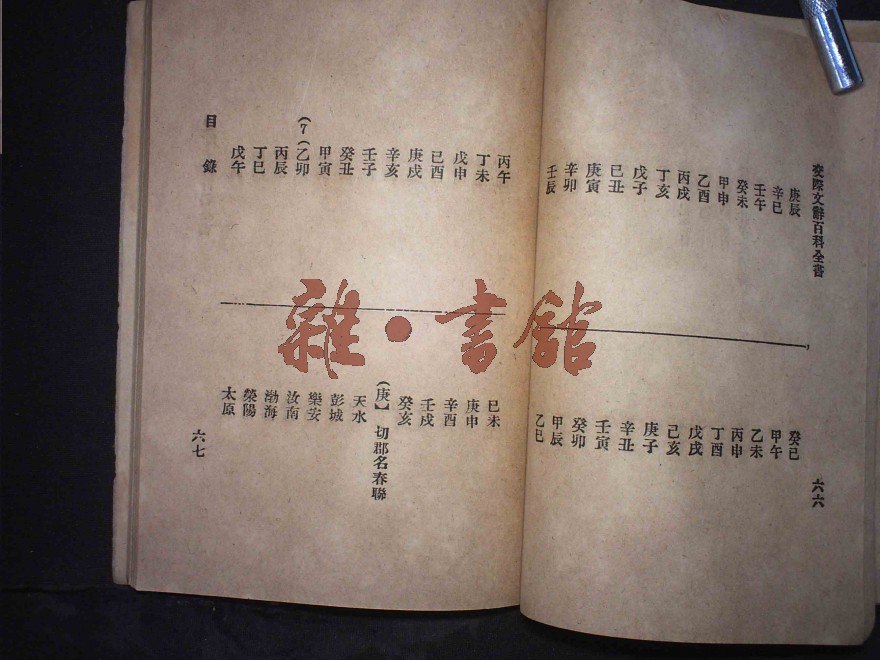 交際文辭百科全書
庚辰
辛巳
壬午
癸未
甲申
乙酉
丙戌
丁亥
戊子
巳丑
庚寅
辛卯
壬辰
癸巳
甲午
乙未
丙申
丁酉
戊戌
己亥
庚子
辛丑
壬寅
癸卯
甲辰
乙巳
六六
丙午
丁未
戊申
己酉
庚戌
辛亥
壬子
癸丑
甲寅
(7(乙卯
丙辰
丁巳
戊午
巳未
庚申
辛酉
壬戌
癸亥
(庚】 切郡名春聯
天水
彭城
樂安
汝南
渤海
滎陽
太原
目錄
六七
雜·書館